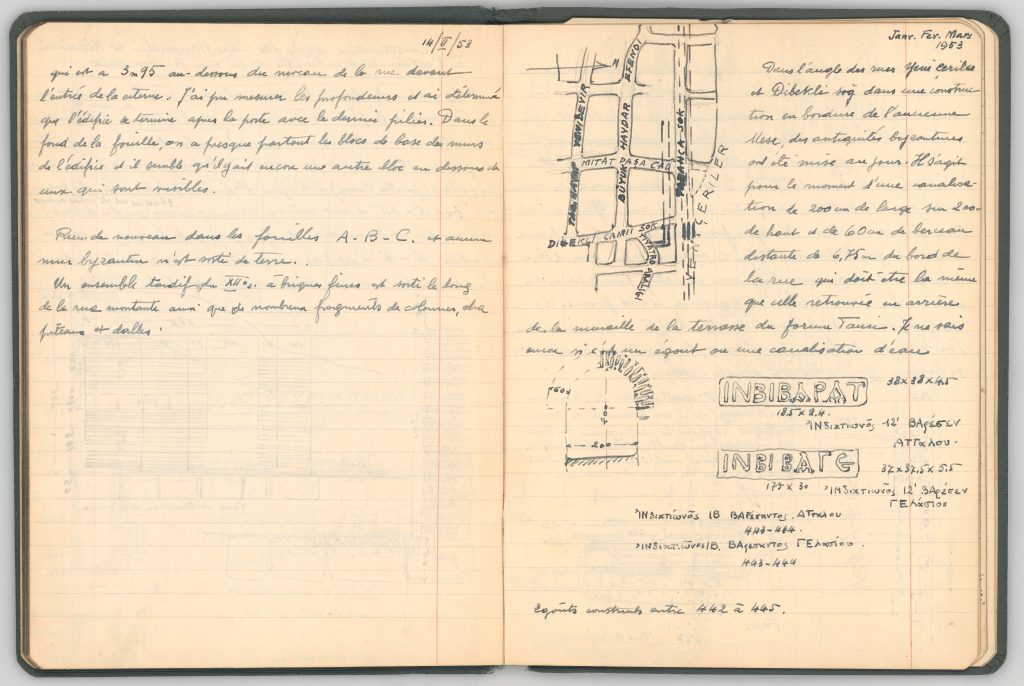 14/II/53
qui est a 3m95 au-dessous du niveau de la rue devant
l'entrée de la citerne. J'ai pu mesurer les profondeurs et ai déterminé
que l'édifice se termine après la porte avec le dernier pilier. Dans le
fond de la fouille, on a presque partout les blocs de base des murs
de l'édifice et il semble qu'il y ait encore une autre bloc en dessous de
ceux qui sont visibles.
Rien de nouveau dans les fouilles A-B-C. et aucun
mur byzantin n'est sorti de terre.
Un ensemble tardif du XIIe s. à briques fines est sorti le long
de la rue montante ainsi que de nombreux fragments de colonnes, cha
piteaux et dalles.
Janv. Fev. Mars
1953
Dans l'angle des rues Yeni Çeriler
et Dibekli soğ dans une construc
tion en bordure de l'ancienne
Mese, des antiquités byzantines
ont été mise au jour. Il s'agit
pour le moment d'une canalisa-
tion de 200 cm de large sur 200
de haut et de 60 cm de berceau
distante de 6,75 m du bord de
la rue qui doit être la même
que celle retrouvée en arrière
de la muraille de la terrasse du forum Tauri. Je ne sais
encor si c'est un égout ou une canalisation d'eau
YENIDEVIR
BÜYÜK HAYDAR EFENDI
MITAT PASA CAD
TABANCA SOK
YENIÇERILER
DIBEKLI CAMII SOK
TIYATRO
60
200
200
INBIBAPAT
38x38x4.5
18.5 x 2.4.
ἸΝδικτιωνος 12' ΒΑρέσεν
ΑΤταλου.
INBIBAΓE
37x37.5x5.5
17.5 x 30
ἸΝδικτιωνος 12' ΒΑρέσεν
ΓΕλάσιος
ἸΝδικτιωνος ΙΒ ΒΑΡέσαντος. ΑΤταλου
443-444.
ἸΝδικτιωνος ΙΒ. ΒΑρεσαντος ΓΕλασίου.
443-444
Egoûts construits entre 442 à 445.